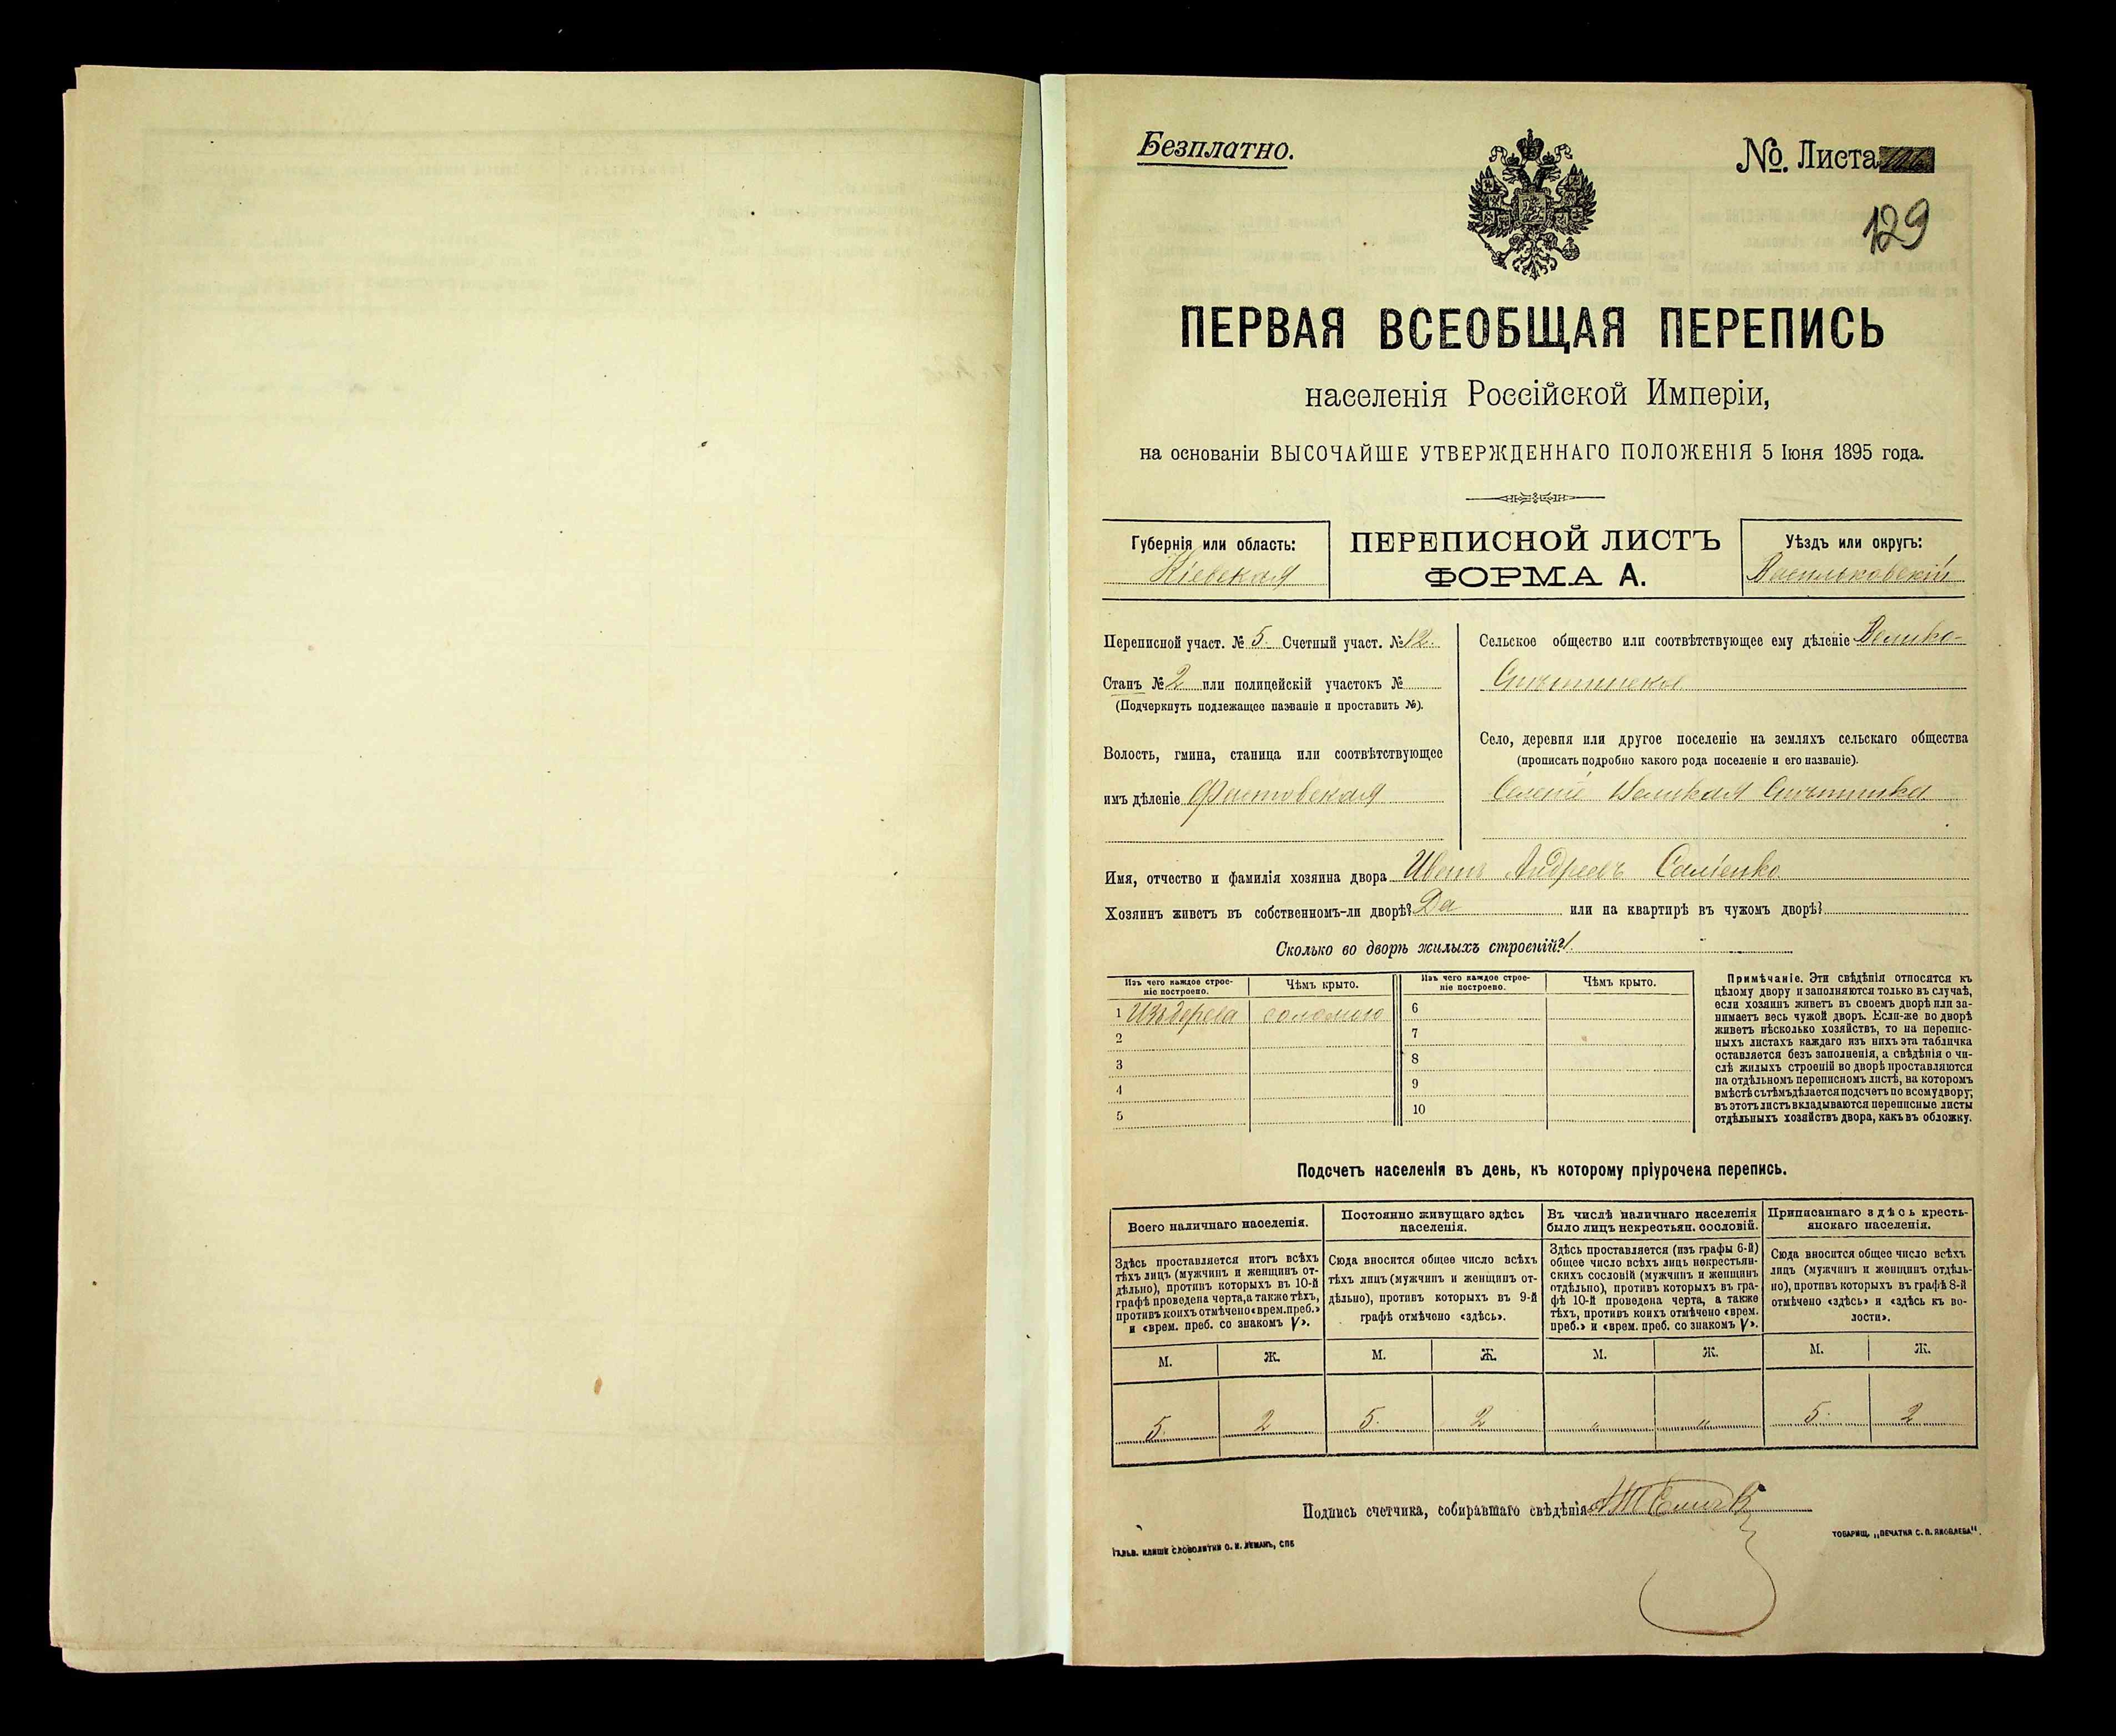 Безплатно.
№ Листа
129
ПЕРВАЯ ВСЕОБЩАЯ ПЕРЕПИСЬ
населенія Россійской Имперіи,
на основаніи ВЫСОЧАЙШЕ УТВЕРЖДЕННАГО ПОЛОЖЕНІЯ 5 Іюня 1895 года.
Губернія или область:
Кіевская
ПЕРЕПИСНОЙ ЛИСТЪ
ФОРМА А.
Уѣздъ или округъ:
Васильковскій
Переписной участ. № 5. Счетный участ. № 12.
Станъ № 2 или полицейскій участокъ №
(Подчеркнуть подлежащее названіе и проставить №).
Волость, гмина, станица или соотвѣтствующее
имъ дѣленіе Фастовская
Сельское общество или соотвѣтствующее ему дѣленіе Велико-
Снѣтинское
Село, деревня или другое поселеніе на земляхъ сельскаго общества
(прописать подробно какого рода поселеніе и его названіе).
Селеніе Великая Снѣтинка
Имя, отчество и фамилія хозяина двора Иванъ Андреевъ
Хозяинъ живетъ въ собственномъ-ли дворѣ? Да или на квартирѣ въ чужомъ дворѣ?
Сколько во дворѣ жилыхъ строеній? 1.
Изъ чего каждое строе-
ніе построено.
Чѣмъ крыто.
Изъ чего каждое строе-
ніе построено.
Чѣмъ крыто.
1 Изъ дерева соломою 6
2 7
3 8
4 9
5 10
Примѣчаніе. Эти свѣдѣнія относятся къ
цѣлому двору и заполняются только въ случаѣ,
если хозяинъ живетъ въ своемъ дворѣ или за-
нимаетъ весь чужой дворъ. Если-же во дворѣ
живетъ нѣсколько хозяйствъ, то на перепис-
ныхъ листахъ каждаго изъ нихъ эта табличка
оставляется безъ заполненія, а свѣдѣнія о чи-
слѣ жилыхъ строеній во дворѣ проставляются
на отдѣльномъ переписномъ листѣ, на которомъ
вмѣстѣ съ тѣмъ дѣлается подсчетъ по всему двору;
въ этотъ листъ вкладываются переписные листы
отдѣльныхъ хозяйствъ двора, какъ въ обложку.
Подсчетъ населенія въ день, къ которому пріурочена перепись.
Всего наличнаго населенія.
Здѣсь проставляется итогъ всѣхъ
тѣхъ лицъ (мужчинъ и женщинъ от-
дѣльно), противъ которыхъ въ 10-й
графѣ проведена черта, а также тѣхъ,
противъ коихъ отмѣчено «врем. преб.»
и «врем. преб. со знакомъ V».
Постоянно живущаго здѣсь
населенія.
Сюда вносится общее число всѣхъ
тѣхъ лицъ (мужчинъ и женщинъ от-
дѣльно), противъ которыхъ въ 9-й
графѣ отмѣчено «здѣсь».
Въ числѣ наличнаго населенія
было лицъ некрестьян. сословій.
Здѣсь проставляется (изъ графы 6-й)
общее число всѣхъ лицъ некрестьян-
скихъ сословій (мужчинъ и женщинъ
отдѣльно), противъ которыхъ въ гра-
фѣ 10-й проведена черта, а также
тѣхъ, противъ коихъ отмѣчено «врем.
преб.» и «врем. преб. со знакомъ V».
Приписаннаго здѣсь кресть-
янскаго населенія.
Сюда вносится общее число всѣхъ
лицъ (мужчинъ и женщинъ отдѣль-
но), противъ которыхъ въ графѣ 8-й
отмѣчено «здѣсь» и «здѣсь къ во-
лости».
М. Ж. М. Ж. М. Ж. М. Ж.
5. 2 5. 2 " " 5. 2
Подпись счетчика, собиравшаго свѣдѣнія
ГАЛЬВ. КЛИШЕ СЛОВОЛИТНИ О. И. ЛЕМАНЪ, СПБ
ТОВАРИЩ. „ПЕЧАТНЯ С. П. ЯКОВЛЕВА".